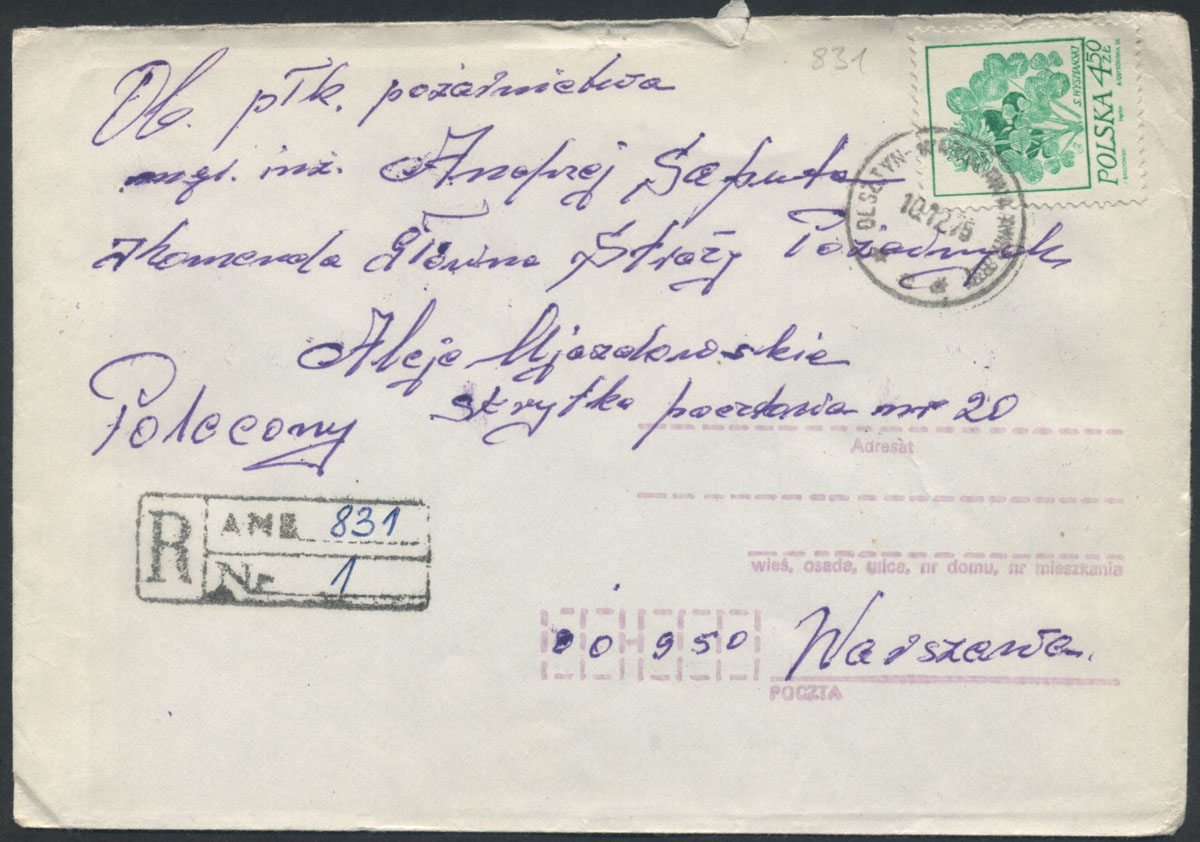 831
S. WYSPIAŃSKI
POLSKA 4,50 ZŁ
Ob. płk. pożarnictwa
mgr. inż. Andrzej Sapuła
Komenda Główna Straży Pożarnych
Aleje Ujazdowskie
Skrytka pocztowa nr 20
Polecony
OLSZTYN
10.12.75
Adresat
R
831
Nr 1
wieś, osada, ulica, nr domu, nr mieszkania
00 950 Warszawa.
POCZTA